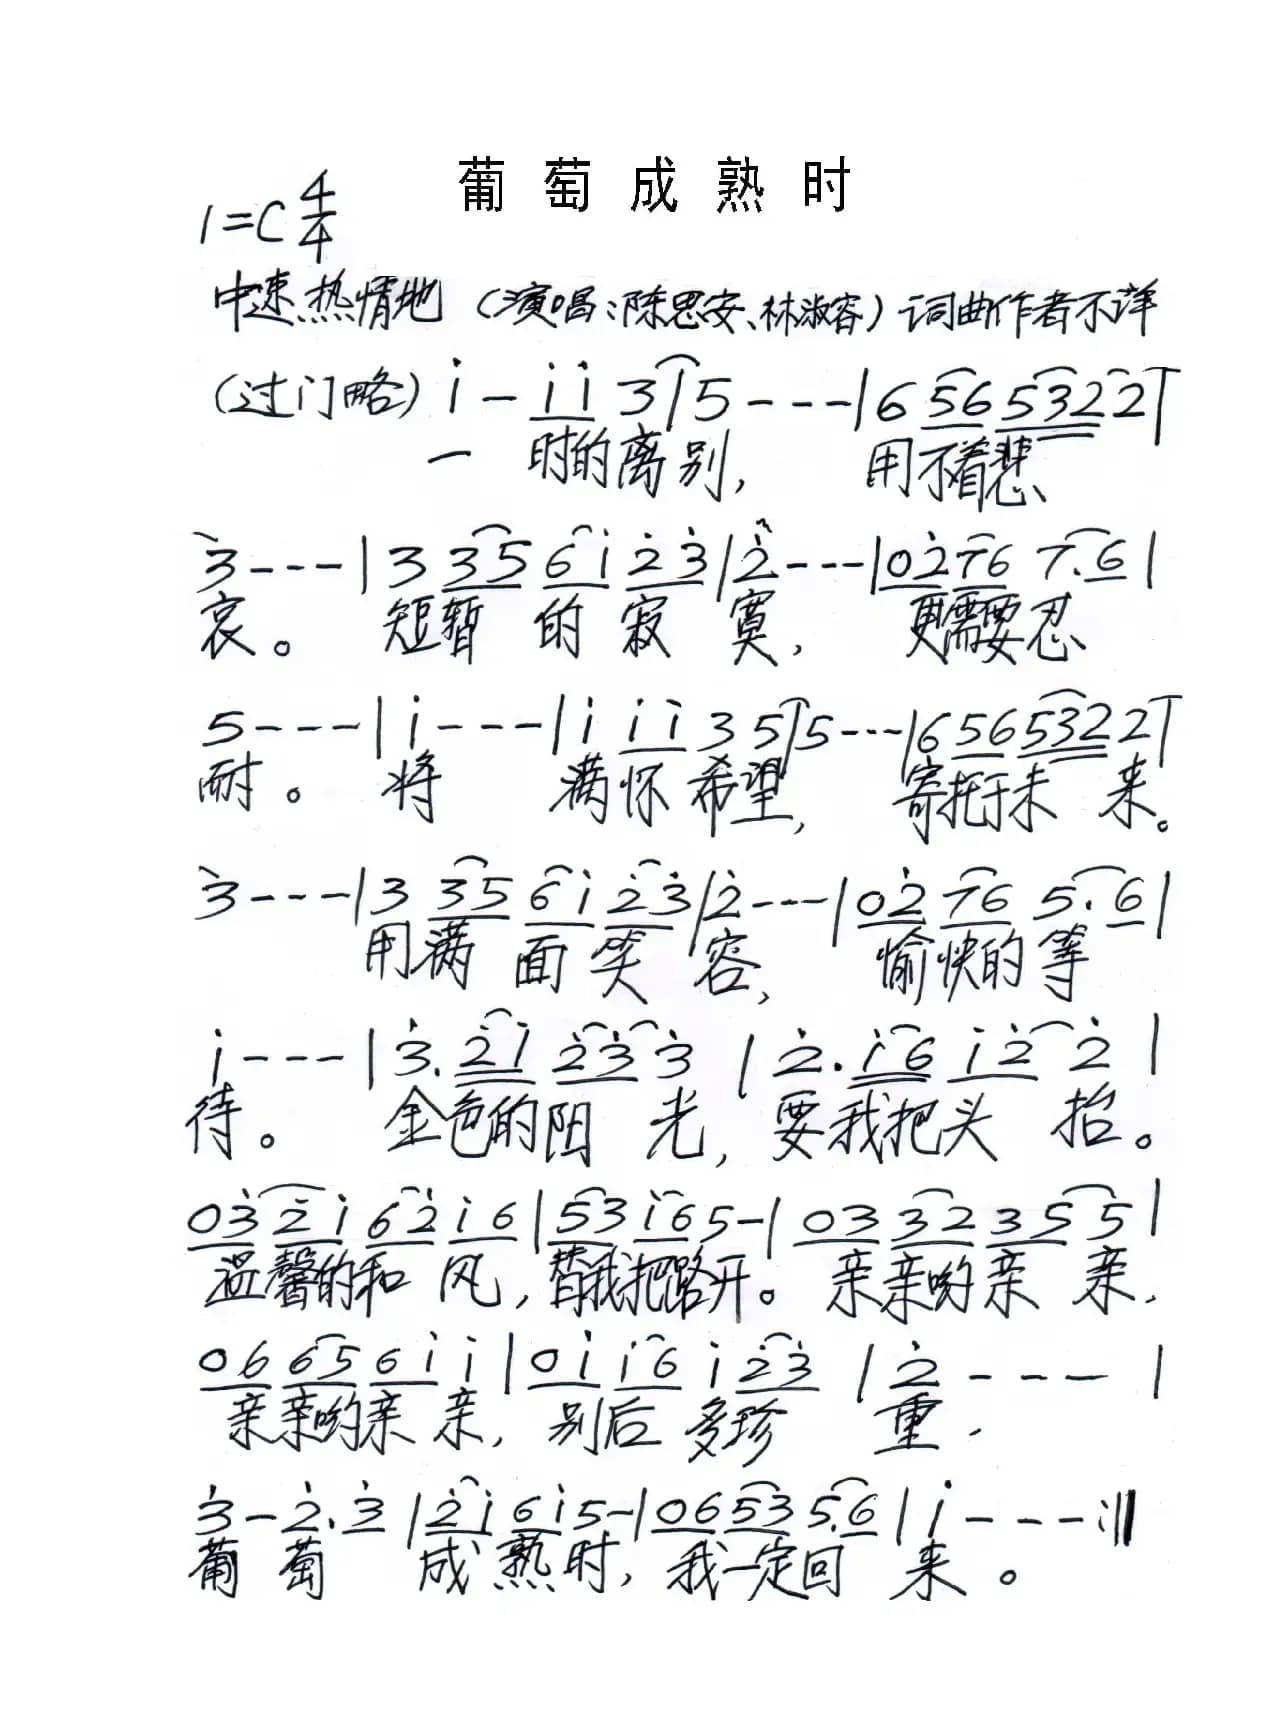 葡萄成熟时
1=C 4/4
中速热情地 （演唱：陈思安、林淑容）词曲作者不详
（过门略）i̇ – i̇ i̇ 3 | 5 - - - | 6 56 5322 |
一 时的离别， 用不着悲、
3̇ - - - | 3 35 6i̇ 2̇3̇ | 2̇ - - - | 02̇76 7.6 |
哀。 短暂 的 寂 寞， 更需要忍
5 - - - | i̇ - - - | i̇ i̇i̇ 3 5 | 5 - - - | 6 56 532 2 |
耐。 将 满怀希望， 寄托于未 来。
3̇ - - - | 3 35 6i̇ 2̇3̇ | 2̇ - - - | 02̇ 76 5.6 |
用满 面 笑 容， 愉快的等
i̇ - - - | 3̇. 2̇i̇ 2̇3̇ 3̇ | 2̇. i̇6 i̇2̇ 2̇ |
待。 金色的阳 光， 要我把头 抬。
03̇ 2̇i̇ 62̇ i̇6 | 53 i̇6 5- | 03 32 35 5 |
温馨的和 风，替我把路开。 亲亲哟亲 亲，
06 665 6i̇ i̇ | 0i̇ i̇6 i̇ 2̇3̇ | 2̇ - - - |
亲亲哟亲 亲， 别后 多珍 重，
3̇ – 2̇. 3̇ | 2̇i̇ 6i̇ 5- | 06 53 5.6 | i̇ - - - :||
葡 萄 成 熟 时，我一定回 来。